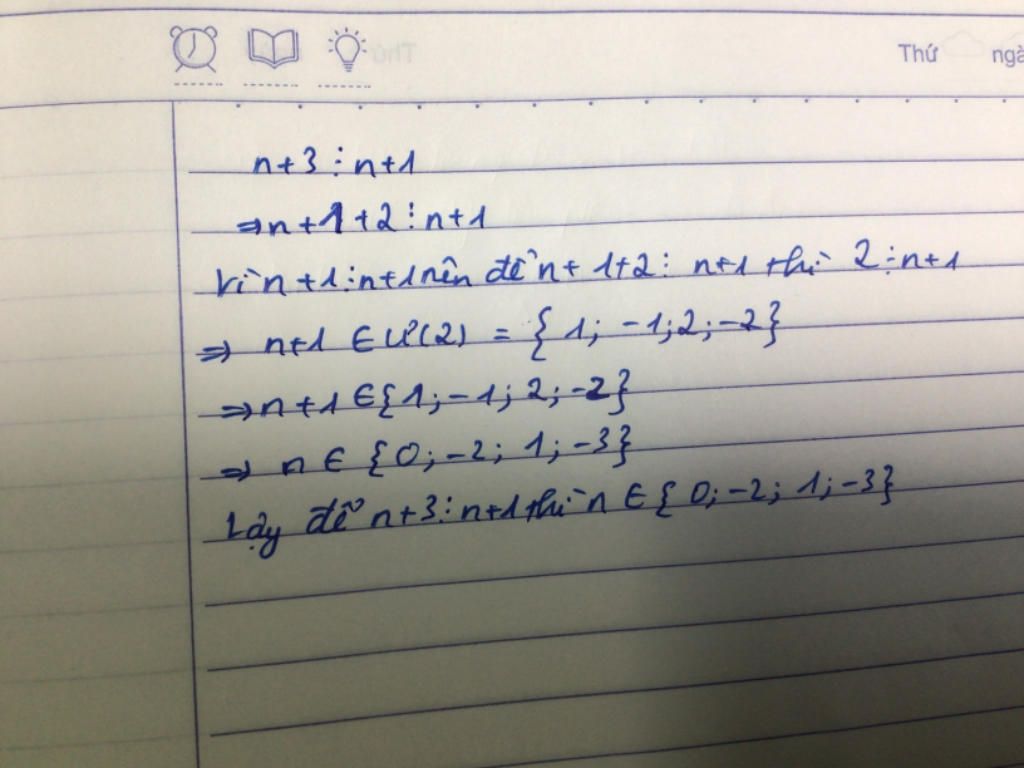 Thứ ngà
n+3 ⋮ n+1
⇒ n+1+2 ⋮ n+1
Vì n+1 ⋮ n+1 nên để n+1+2 ⋮ n+1 thì 2 ⋮ n+1
⇒ n+1 ∈ Ư(2) = {1; -1; 2; -2}
⇒ n+1 ∈ {1; -1; 2; -2}
⇒ n ∈ {0; -2; 1; -3}
Vậy để n+3 ⋮ n+1 thì n ∈ {0; -2; 1; -3}